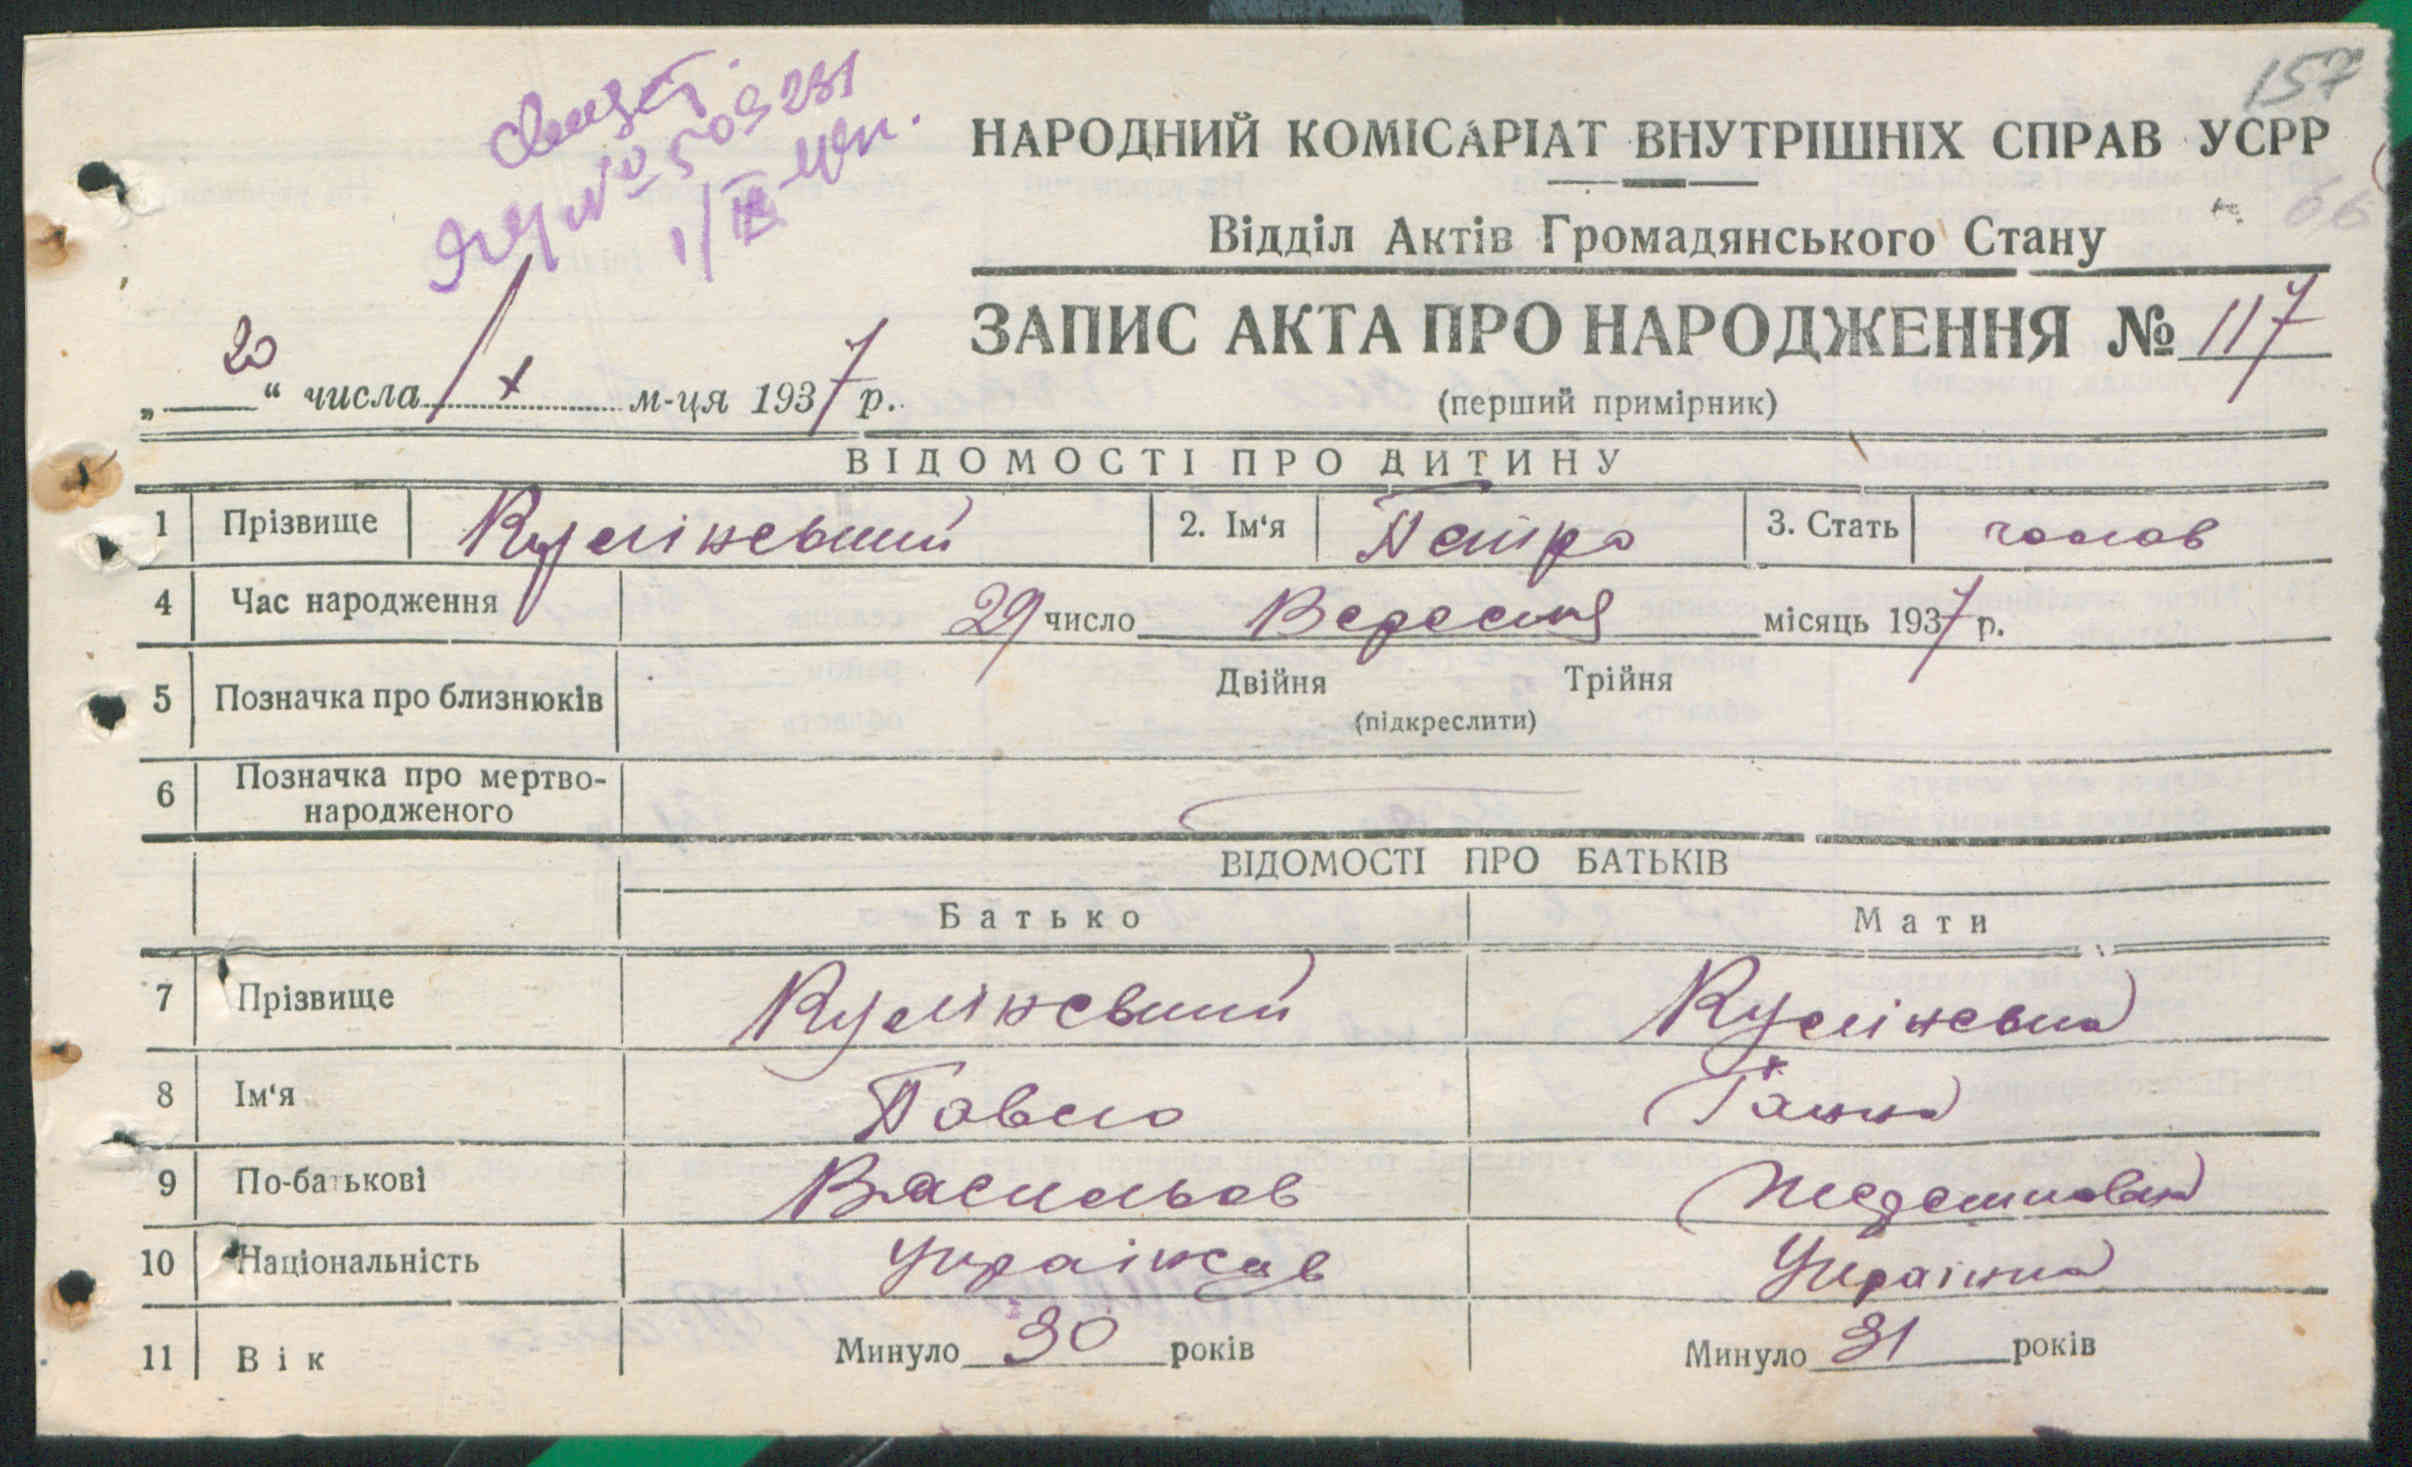 157
№ 509231
1/IX-40 р.
НАРОДНИЙ КОМІСАРІАТ ВНУТРІШНІХ СПРАВ УСРР
66
Відділ Актів Громадянського Стану
ЗАПИС АКТА ПРО НАРОДЖЕННЯ № 117
„20“ числа X м-ця 1937 р.
(перший примірник)
ВІДОМОСТІ ПРО ДИТИНУ
1 Прізвище Куліковський 2. Ім‘я Петро 3. Стать чолов
4 Час народження 29 число Вересня місяць 1937 р.
5 Позначка про близнюків Двійня Трійня
(підкреслити)
6 Позначка про мертво-
народженого
ВІДОМОСТІ ПРО БАТЬКІВ
Батько Мати
7 Прізвище
8 Ім‘я Павло Ганна
9 По-батькові Васильов
10 Національність Українец Українка
11 Вік Минуло 30 років Минуло 31 років